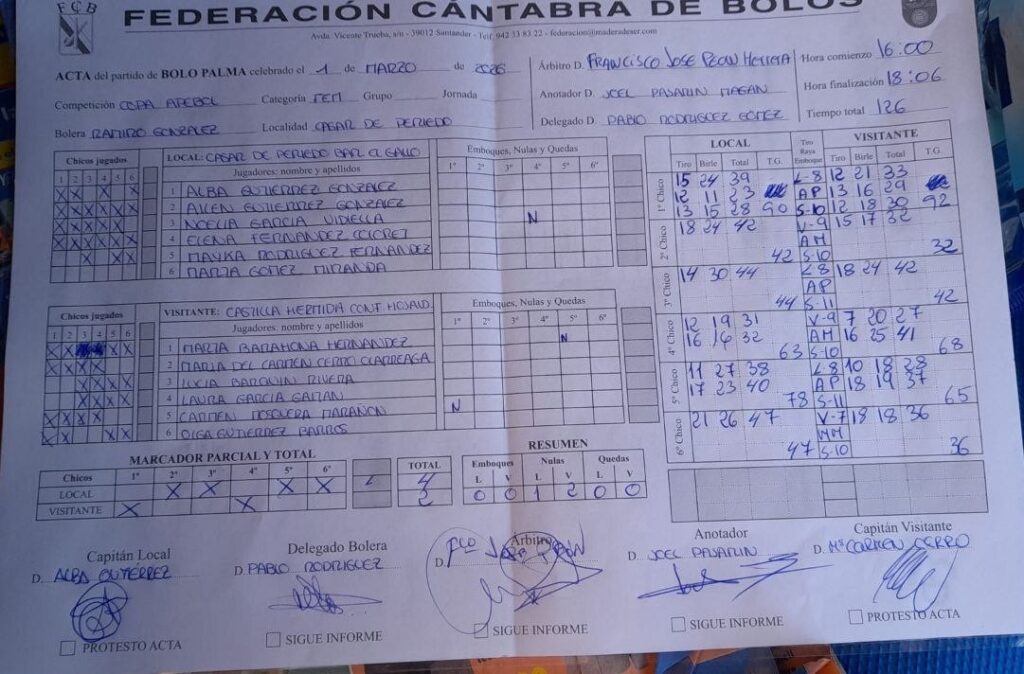 FCB
FEDERACIÓN CÁNTABRA DE BOLOS
Avda. Vicente Trueba, s/n - 39012 Santander - Telf. 942 33 83 22 - federacion@maderadeser.com
ACTA del partido de BOLO PALMA celebrado el 1 de MARZO de 2026
Árbitro D. FRANCISCO JOSE PEON HERRERA
Hora comienzo 16:00
Competición COPA APEBOL Categoría FEM Grupo Jornada
Anotador D. JOEL PASARIN MAGAN
Hora finalización 18:06
Bolera RAMIRO GONZALEZ Localidad CASAR DE PERIEDO
Delegado D. PABLO RODRIGUEZ GOMEZ
Tiempo total 126
Chicos jugados
1 2 3 4 5 6
LOCAL: CASAR DE PERIEDO BAR EL GALLO
Jugadores: nombre y apellidos
Emboques, Nulas y Quedas
1º 2º 3º 4º 5º 6º
1 ALBA GUTIERREZ GONZALEZ
2 AILEN GUTIERREZ GONZALEZ
3 NOELIA GARCIA VIDIELLA N
4 ELENA FERNANDEZ
5 MAYKA RODRIGUEZ FERNANDEZ
6 MARTA GOMEZ MIRANDA
Chicos jugados
1 2 3 4 5 6
VISITANTE: CASTILLA HERMIDA CONT HOJALD.
Jugadores: nombre y apellidos
Emboques, Nulas y Quedas
1º 2º 3º 4º 5º 6º
1 MARTA BARAHONA HERNANDEZ N
2 MARIA DEL CARMEN CERRO CLARREAGA
3 LUCIA BARQUIN RIVERA
4 LAURA GARCIA GAITAN
5 CARMEN MOSQUERA MARAÑON N
6 OLGA GUTIERREZ BARROS
LOCAL
Tiro Birle Total T.G.
Tiro Raya Emboque
VISITANTE
Tiro Birle Total T.G.
1º Chico
15 24 39 L-8 12 21 33
12 11 23 AP 13 16 29
13 15 28 90 S-10 12 18 30 92
2º Chico
18 24 42 V-9 15 17 32
AM
42 S-10 32
3º Chico
14 30 44 L-8 18 24 42
AP
44 S-11 42
4º Chico
12 19 31 V-9 7 20 27
16 16 32 AM 16 25 41
63 S-10 68
5º Chico
11 27 38 L-8 10 18 28
17 23 40 AP 18 19 37
78 S-11 65
6º Chico
21 26 47 V-7 18 18 36
MM
47 S-10 36
MARCADOR PARCIAL Y TOTAL
Chicos 1º 2º 3º 4º 5º 6º TOTAL
LOCAL X X X X 4
VISITANTE X X 2
RESUMEN
Emboques Nulas Quedas
L V L V L V
0 0 1 2 0 0
Capitán Local
D. ALBA GUTIÉRREZ
PROTESTO ACTA
Delegado Bolera
D. PABLO RODRIGUEZ
SIGUE INFORME
Árbitro
D. Fco JOSE PEON
SIGUE INFORME
Anotador
D. JOEL PASARIN
SIGUE INFORME
Capitán Visitante
D. Mª CARMEN CERRO
PROTESTO ACTA